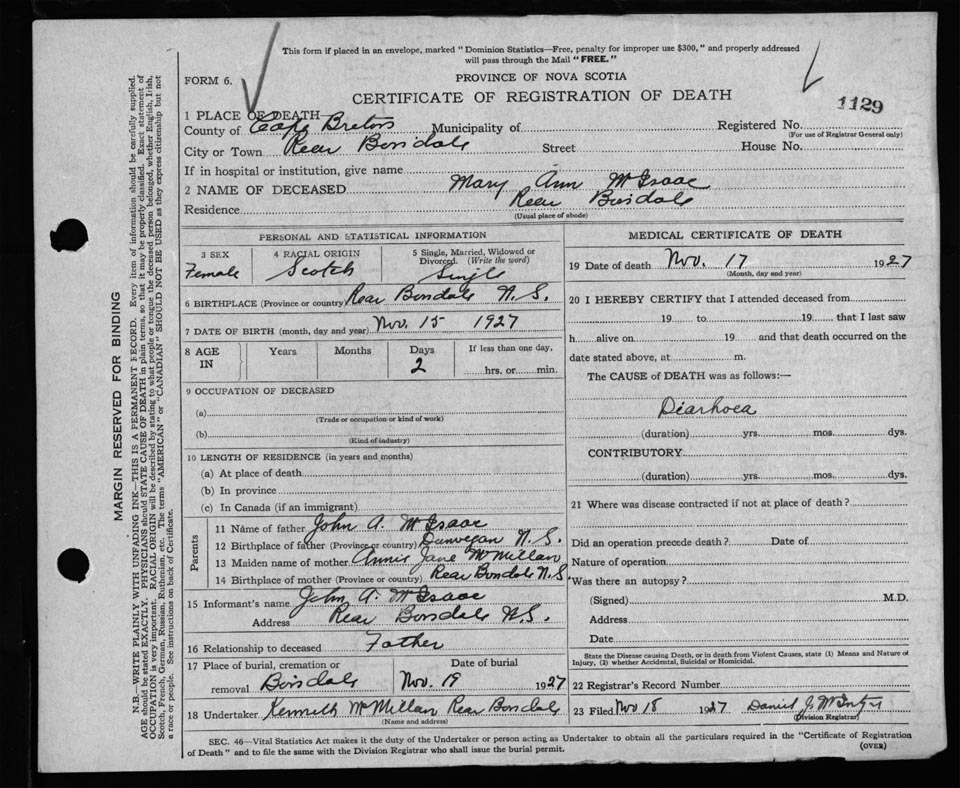 This form if placed in an envelope, marked "Dominion Statistics—Free, penalty for improper use $300," and properly addressed
will pass through the Mail "FREE."
FORM 6.
PROVINCE OF NOVA SCOTIA
CERTIFICATE OF REGISTRATION OF DEATH
1129
1 PLACE OF DEATH
County of Cape Breton Municipality of Registered No.
(For use of Registrar General only)
City or Town Rear Boisdale Street House No.
If in hospital or institution, give name
2 NAME OF DECEASED Mary Ann McIsaac
Residence Rear Boisdale
(Usual place of abode)
PERSONAL AND STATISTICAL INFORMATION
3 SEX
Female
4 RACIAL ORIGIN
Scotch
5 Single, Married, Widowed or
Divorced. (Write the word)
Single
6 BIRTHPLACE (Province or country) Rear Boisdale N.S.
7 DATE OF BIRTH (month, day and year) Nov. 15 1927
8 AGE
IN
Years
Months
Days
2
If less than one day,
hrs. or min.
9 OCCUPATION OF DECEASED
(a)
(Trade or occupation or kind of work)
(b)
(Kind of industry)
10 LENGTH OF RESIDENCE (in years and months)
(a) At place of death
(b) In province
(c) In Canada (if an immigrant)
Parents
11 Name of father John A. McIsaac
12 Birthplace of father (Province or country) Dunvegan N.S.
13 Maiden name of mother Annie Jane McMillan
14 Birthplace of mother (Province or country) Rear Boisdale N.S.
15 Informant's name John A. McIsaac
Address Rear Boisdale N.S.
16 Relationship to deceased Father
17 Place of burial, cremation or
removal Boisdale
Date of burial
Nov. 19 1927
18 Undertaker Kenneth McMillan Rear Boisdale
(Name and address)
MEDICAL CERTIFICATE OF DEATH
19 Date of death Nov. 17 1927
(Month, day and year)
20 I HEREBY CERTIFY that I attended deceased from
19 to 19 that I last saw
h alive on 19 and that death occurred on the
date stated above, at m.
The CAUSE of DEATH was as follows:—
Diarhoea
(duration) yrs. mos. dys.
CONTRIBUTORY
(duration) yrs. mos. dys.
21 Where was disease contracted if not at place of death?
Did an operation precede death? Date of
Nature of operation
Was there an autopsy?
(Signed) M.D.
Address
Date
State the Disease causing Death, or in death from Violent Causes, state (1) Means and Nature of
Injury, (2) whether Accidental, Suicidal or Homicidal.
22 Registrar's Record Number
23 Filed Nov 18 1927 Daniel J. McIntyre
(Division Registrar)
SEC. 46—Vital Statistics Act makes it the duty of the Undertaker or person acting as Undertaker to obtain all the particulars required in the "Certificate of Registration
of Death" and to file the same with the Division Registrar who shall issue the burial permit.
(OVER)
MARGIN RESERVED FOR BINDING
N.B.—WRITE PLAINLY WITH UNFADING INK—THIS IS A PERMANENT RECORD. Every item of information should be carefully supplied.
AGE should be stated EXACTLY. PHYSICIANS should STATE CAUSE OF DEATH in plain terms, so that it may be properly classified. Exact statement of
OCCUPATION is very important. RACIAL ORIGIN will be described by stating to what people or tongue the deceased person belonged, whether English, Irish,
Scotch, French, German, Russian, Ruthenian, etc. The terms "AMERICAN" or "CANADIAN" SHOULD NOT BE USED as they express citizenship but not
a race or people. See instructions on back of Certificate.